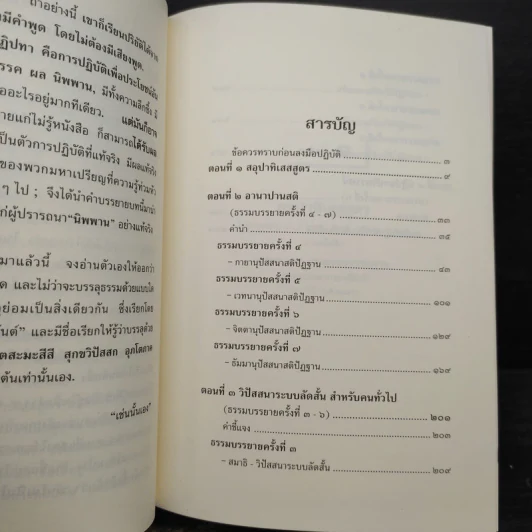 ถ้าอย่างนี้ เขาก็เรียนปริยัติได้จาก
มีคำพูด โดยไม่ต้องมีเสียงพูด.
ฏิปทา คือการปฏิบัติเพื่อประโยชน์อัน
รรค ผล นิพพาน, มีทั้งความลึกซึ้ง มี
อะไรอยู่มากทีเดียว. แต่มันก็อาจ
ายแก่ไม่รู้หนังสือ ก็สามารถได้รับผล
เป็นตัวการปฏิบัติที่แท้จริง มีผลแท้จริง
ของพวกมหาเปรียญที่ความรู้ท่วมหัว
ๆ ไป ; จึงได้นำคำบรรยายบทนี้มานำ
ก่ผู้ปรารถนา "นิพพาน" อย่างแท้จริง
มาแล้วนี้ จงอ่านตัวเองให้ออกว่า
ด และไม่ว่าจะบรรลุธรรมด้วยแบบใด
ย่อมเป็นสิ่งเดียวกัน ซึ่งเรียกโดย
ันต์" และมีชื่อเรียกให้รู้ว่าบรรลุด้วย
ตสะมะสีสี สุกขวิปัสสก อุภโตภาค
ต้นเท่านั้นเอง.
"เช่นนั้นเอง"
สารบัญ
ข้อควรทราบก่อนลงมือปฏิบัติ ๓
ตอนที่ ๑ สอุปาทิเสสสูตร ๙
ตอนที่ ๒ อานาปานสติ
(ธรรมบรรยายครั้งที่ ๔ - ๗) ๓๓
คำนำ ๓๕
ธรรมบรรยายครั้งที่ ๔
- กายานุปัสสนาสติปัฏฐาน ๔๓
ธรรมบรรยายครั้งที่ ๕
- เวทนานุปัสสนาสติปัฏฐาน ๑๐๑
ธรรมบรรยายครั้งที่ ๖
- จิตตานุปัสสนาสติปัฏฐาน ๑๒๙
ธรรมบรรยายครั้งที่ ๗
- ธัมมานุปัสสนาสติปัฏฐาน ๑๖๙
ตอนที่ ๓ วิปัสสนาระบบลัดสั้น สำหรับคนทั่วไป
(ธรรมบรรยายครั้งที่ ๓ - ๖) ๒๐๑
คำชี้แจง ๒๐๓
ธรรมบรรยายครั้งที่ ๓
- สมาธิ - วิปัสสนาระบบลัดสั้น ๒๐๙